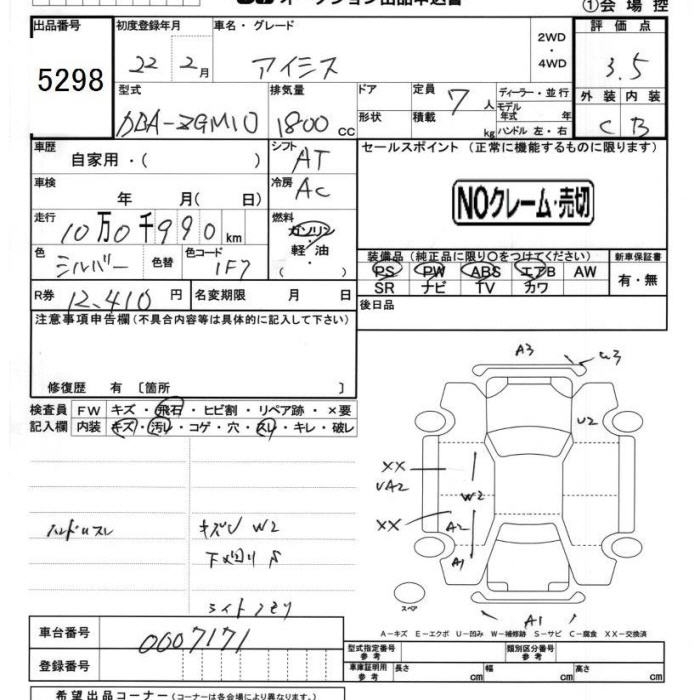 オークション出品申込書
①会場控
出品番号 初度登録年月 車名・グレード 2WD・4WD 評価点
5298 22年2月 アイシス 3.5
型式 排気量 ドア 定員 7人 ディーラー・並行 外装 内装
DBA-ZGM10 1800cc 形状 積載 kg モデル年式 年 ハンドル 左・右 C B
車歴 自家用・( ) シフト AT セールスポイント (正常に機能するものに限ります)
車検 年 月( 日) 冷房 AC NOクレーム・売切
走行 10万0千990km 燃料 ガソリン・軽油 ( )
色 シルバー 色替 色コード 1F7 装備品(純正品に限り〇をつけてください) 新車保証書
PS PW ABS エアB AW 有・無
SR ナビ TV カワ
R券 12,410円 名変期限 月 日 後日品
注意事項申告欄(不具合内容等は具体的に記入して下さい)
修復歴 有 〔箇所 〕
検査員 FW キズ・飛石・ヒビ割・リペア跡・×要
記入欄 内装 キズ・汚レ・コゲ・穴・スレ・キレ・破レ
A3 U3
U2
XX
UA2 W2
XX A2
A1
ハンドルスレ キズU W2
下廻りS
ライトクモリ
スペア
A1
A−キズ E−エクボ U−凹み W−補修跡 S−サビ C−腐食 XX−交換済
車台番号 0007171
登録番号
型式指定番号 参考 類別区分番号 参考
車庫証明用 参考 長さ cm 幅 cm 高さ cm
希望出品コーナー(コーナーは各会場により異なります。)